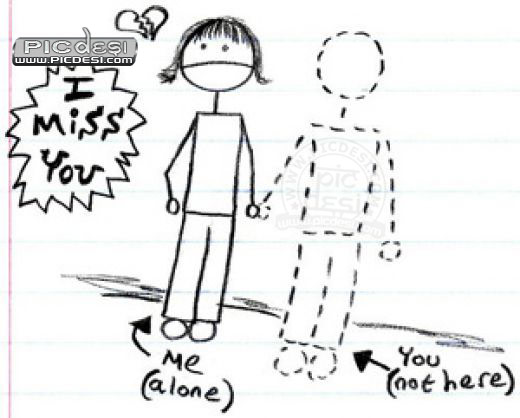 PICDESI
www.PICDESI.com
I
Miss
You
WWW.PICDESI
pic
desi
Me
(alone)
You
(not here)